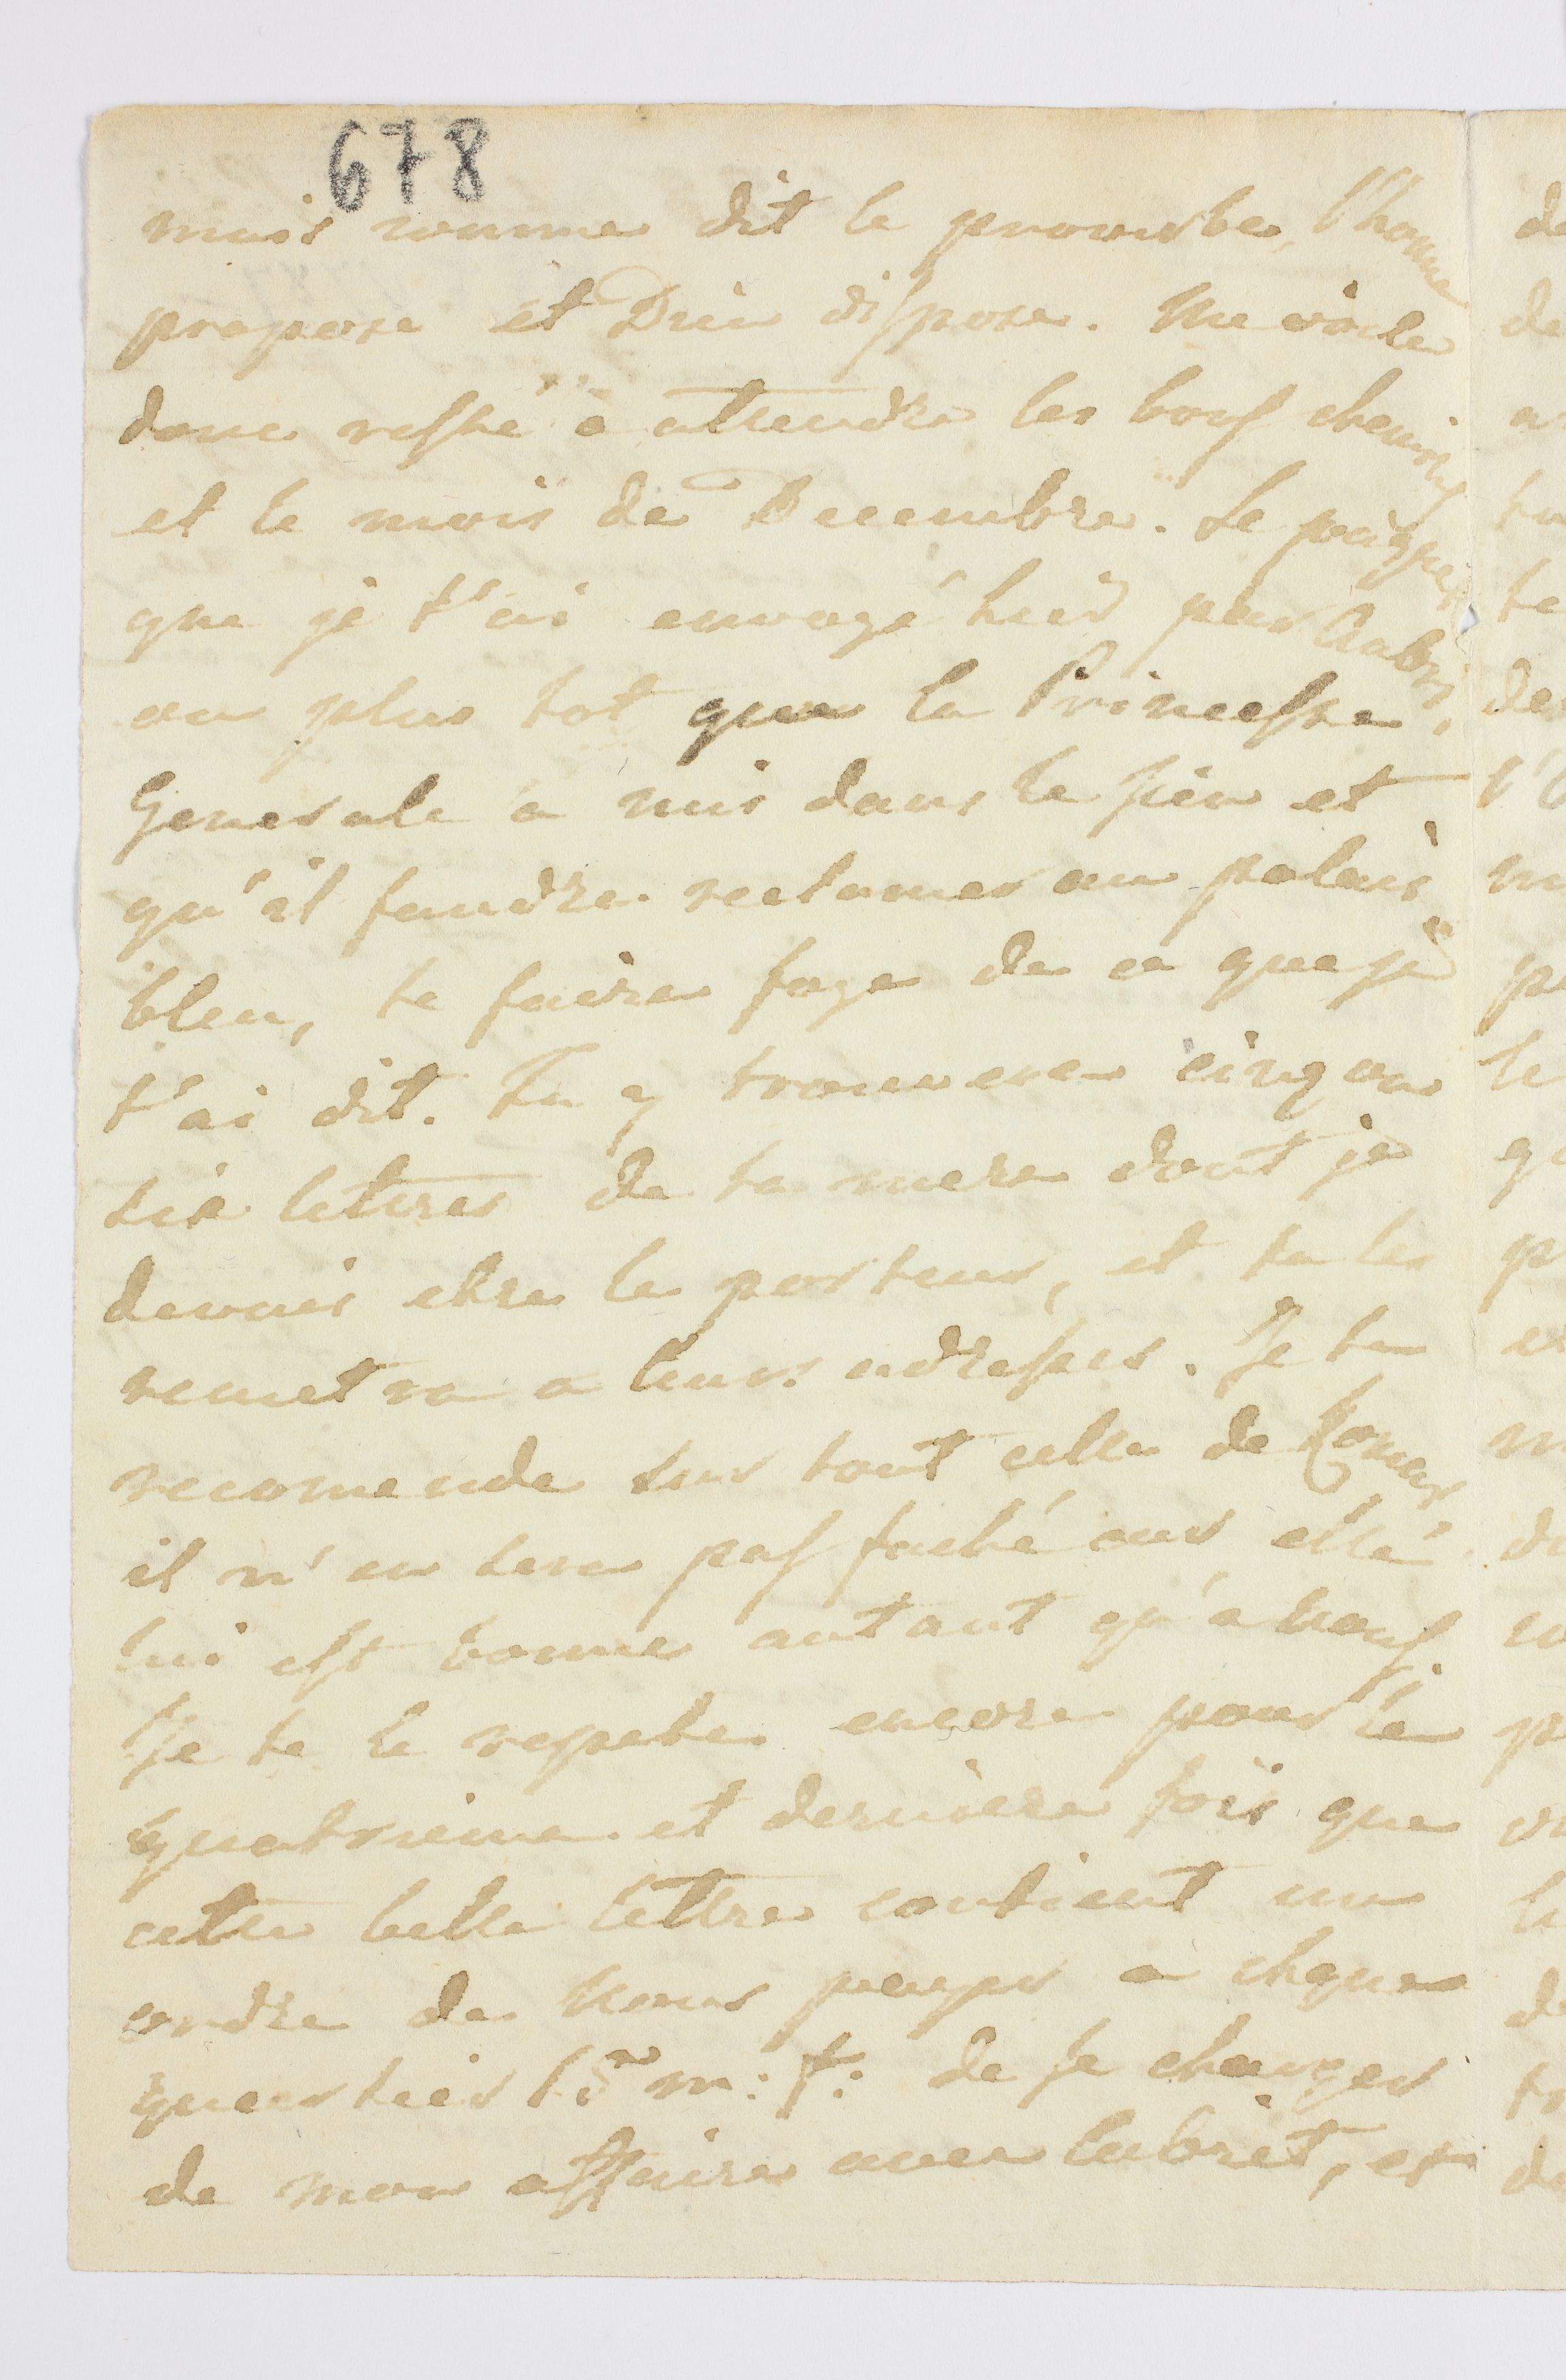 678
mais comme dit le proverbe, l'homme
propose et Dieu dispose. Me voila
donc resté à attendre les bons chemins
et le mois de Decembre. Le paquet
que je t'ai envoyé hier par Aubri,
ou plus tot que la Princesse
Generale a mis dans le sien et
qu'il faudra reclamer au palais
bleu, te faira foye de ce que je
t'ai dit. Tu y trouverera cinq ou
six lettres de ta mere dont je
devais etre le porteur, et tu les
remetra a leurs adresses. Je te
recomende sur tout celle de
il n'en sera pas faché car elle
lui est bonne autant qu'a nous.
Je te le repete encore pour la
quatrieme et derniere fois que
cette belle lettre contient un
ordre de nous payer a chque
quartier 15 m: f: de se charger
de mon affaire avec Cabrit, et
de
de
a
tu
te
de
l'
m
pe
le
qu
p
m
de
p
la
de
de